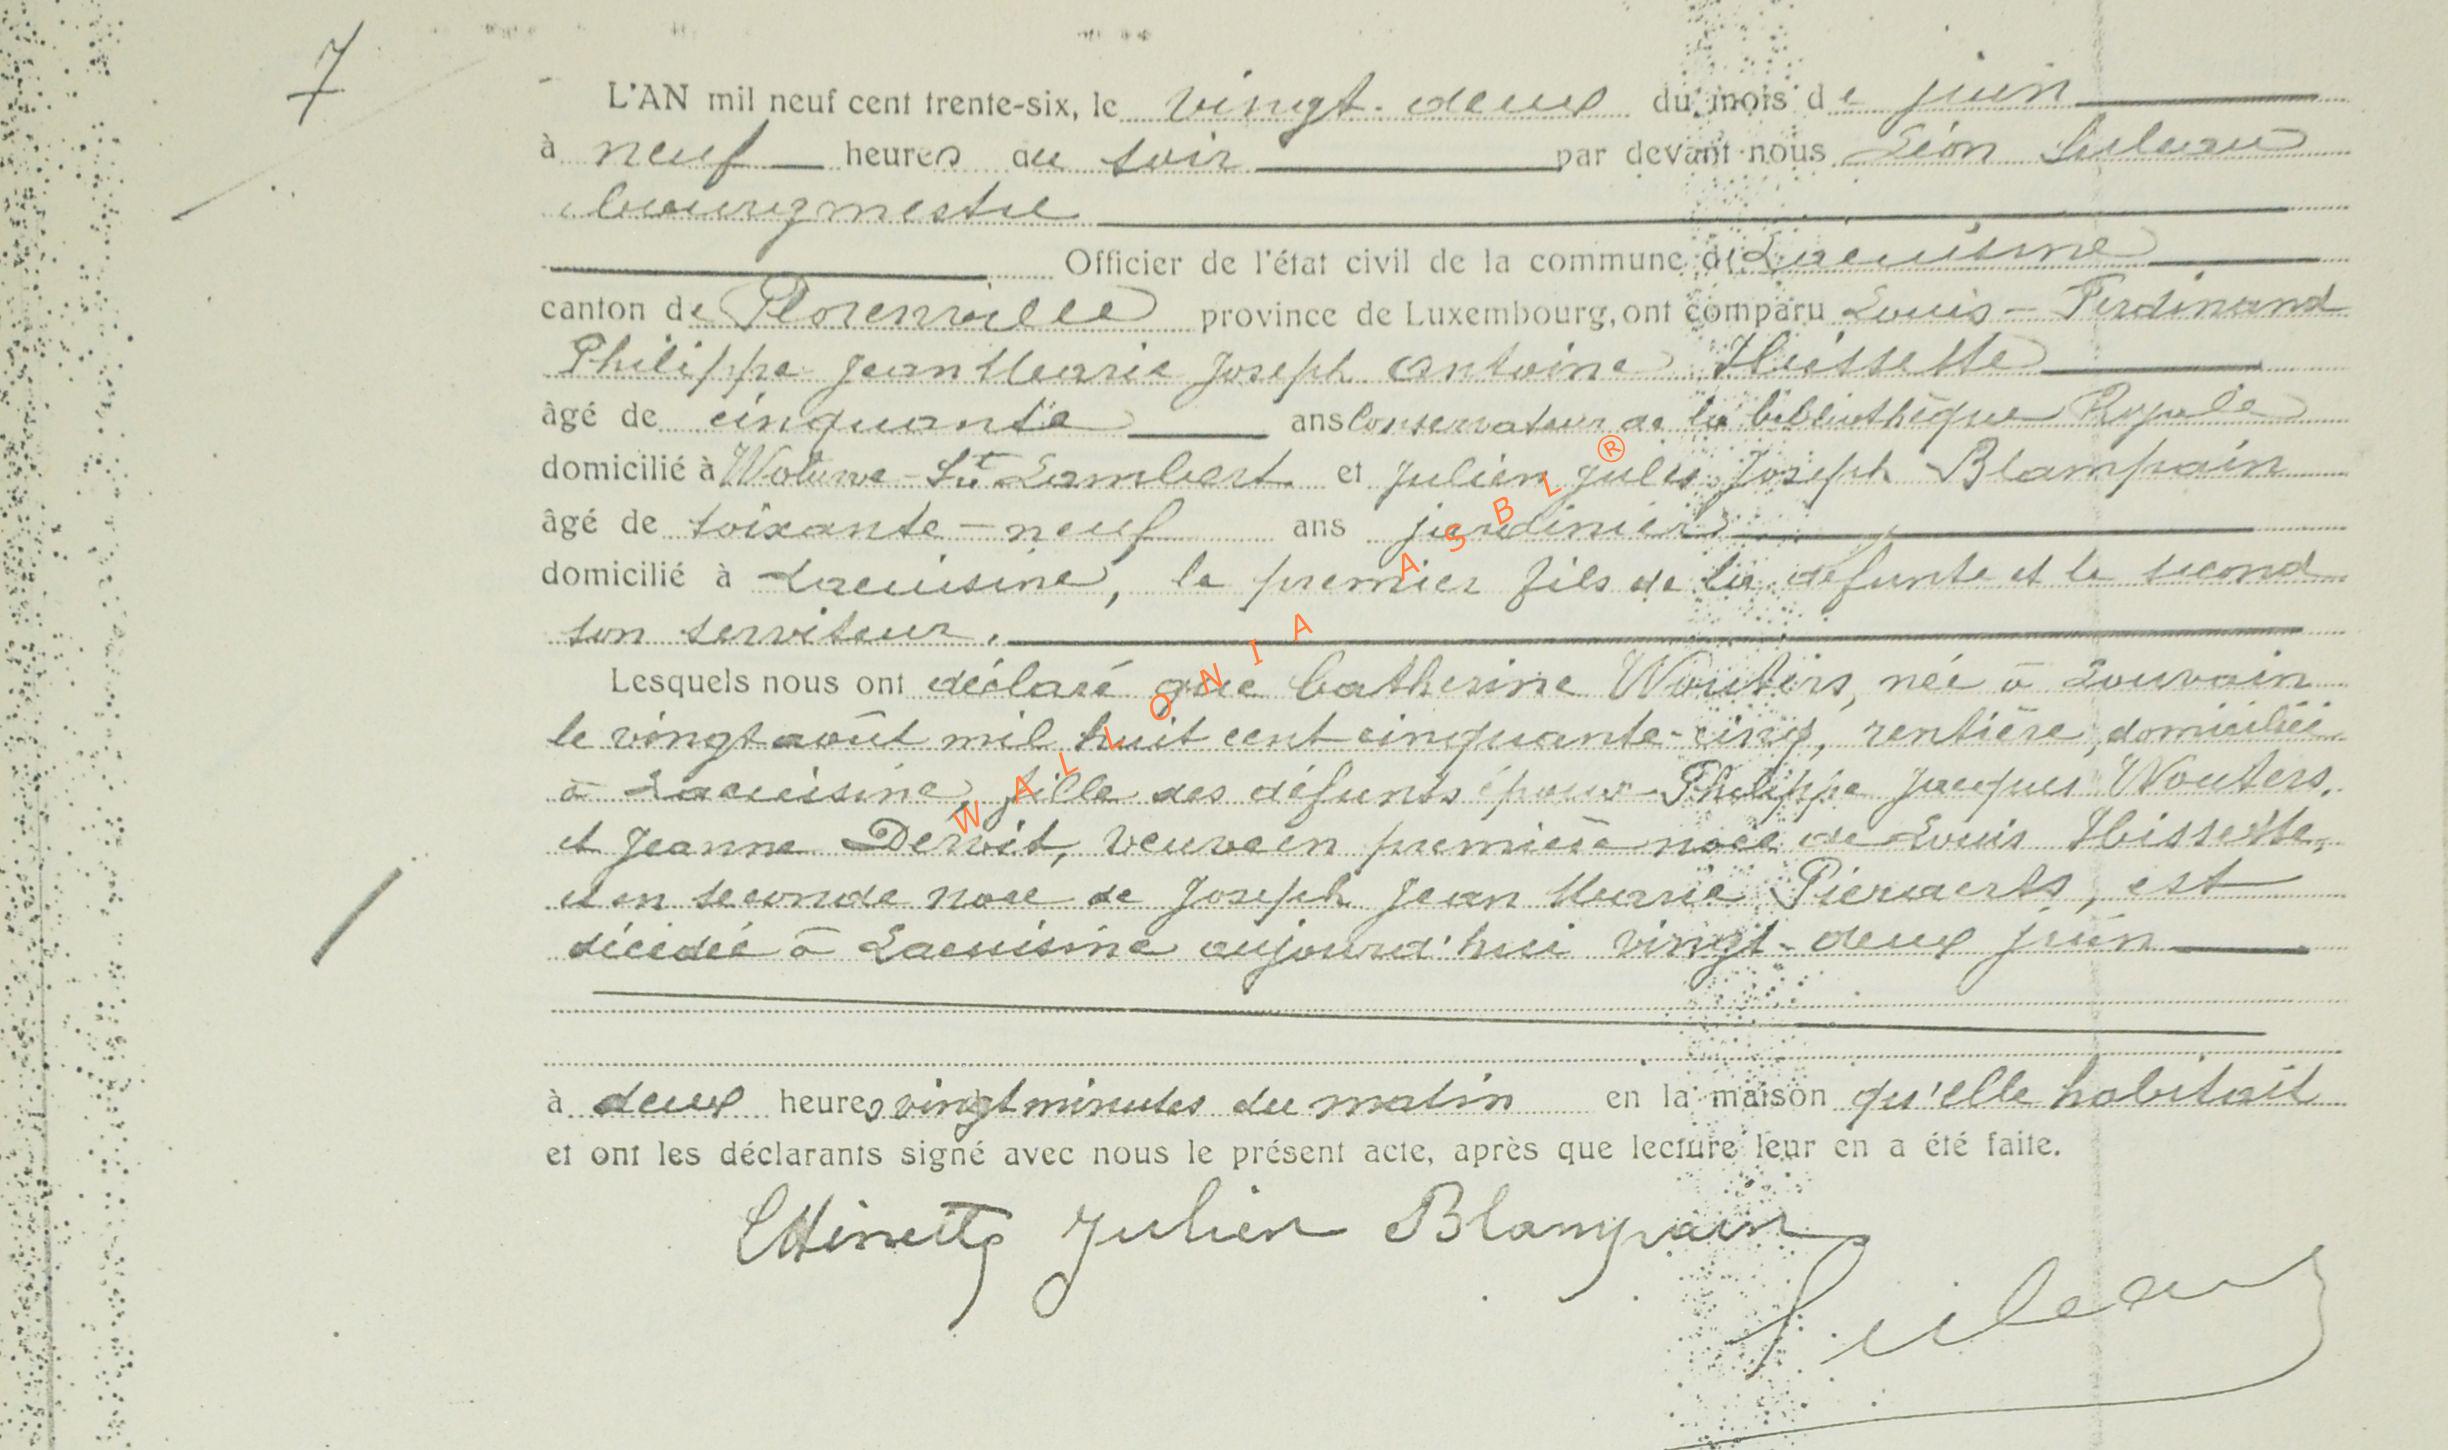 7
L'AN mil neuf cent trente-six, le vingt-deux du mois de juin
à neuf heures du soir par devant nous Léon
bourgmestre
Officier de l'état civil de la commune de Lacuisine
canton de Florenville province de Luxembourg, ont comparu Louis-Ferdinand
Philippe Jean Marie Joseph Antoine Hissette
âgé de cinquante ans Conservateur de la bibliothèque Royale
domicilié à Woluwe-St Lambert et Julien Jules Joseph Blampain
âgé de soixante-neuf ans jardinier
domicilié à Lacuisine, le premier fils de la défunte et le second
son serviteur.
Lesquels nous ont déclaré que Catherine Wouters, née à Louvain
le vingt août mil huit cent cinquante-cinq, rentière, domiciliée
à Lacuisine, fille des défunts époux Philippe Jacques Wouters,
et Jeanne Dewit, veuve en première noce de Louis Hissette,
et en seconde noce de Joseph Jean Marie Pieraerts, est
décédée à Lacuisine aujourd'hui vingt-deux juin
à deux heures vingt minutes du matin en la maison qu'elle habitait
et ont les déclarants signé avec nous le présent acte, après que lecture leur en a été faite.
Julien Blampain
WALLONIA ASBL ®